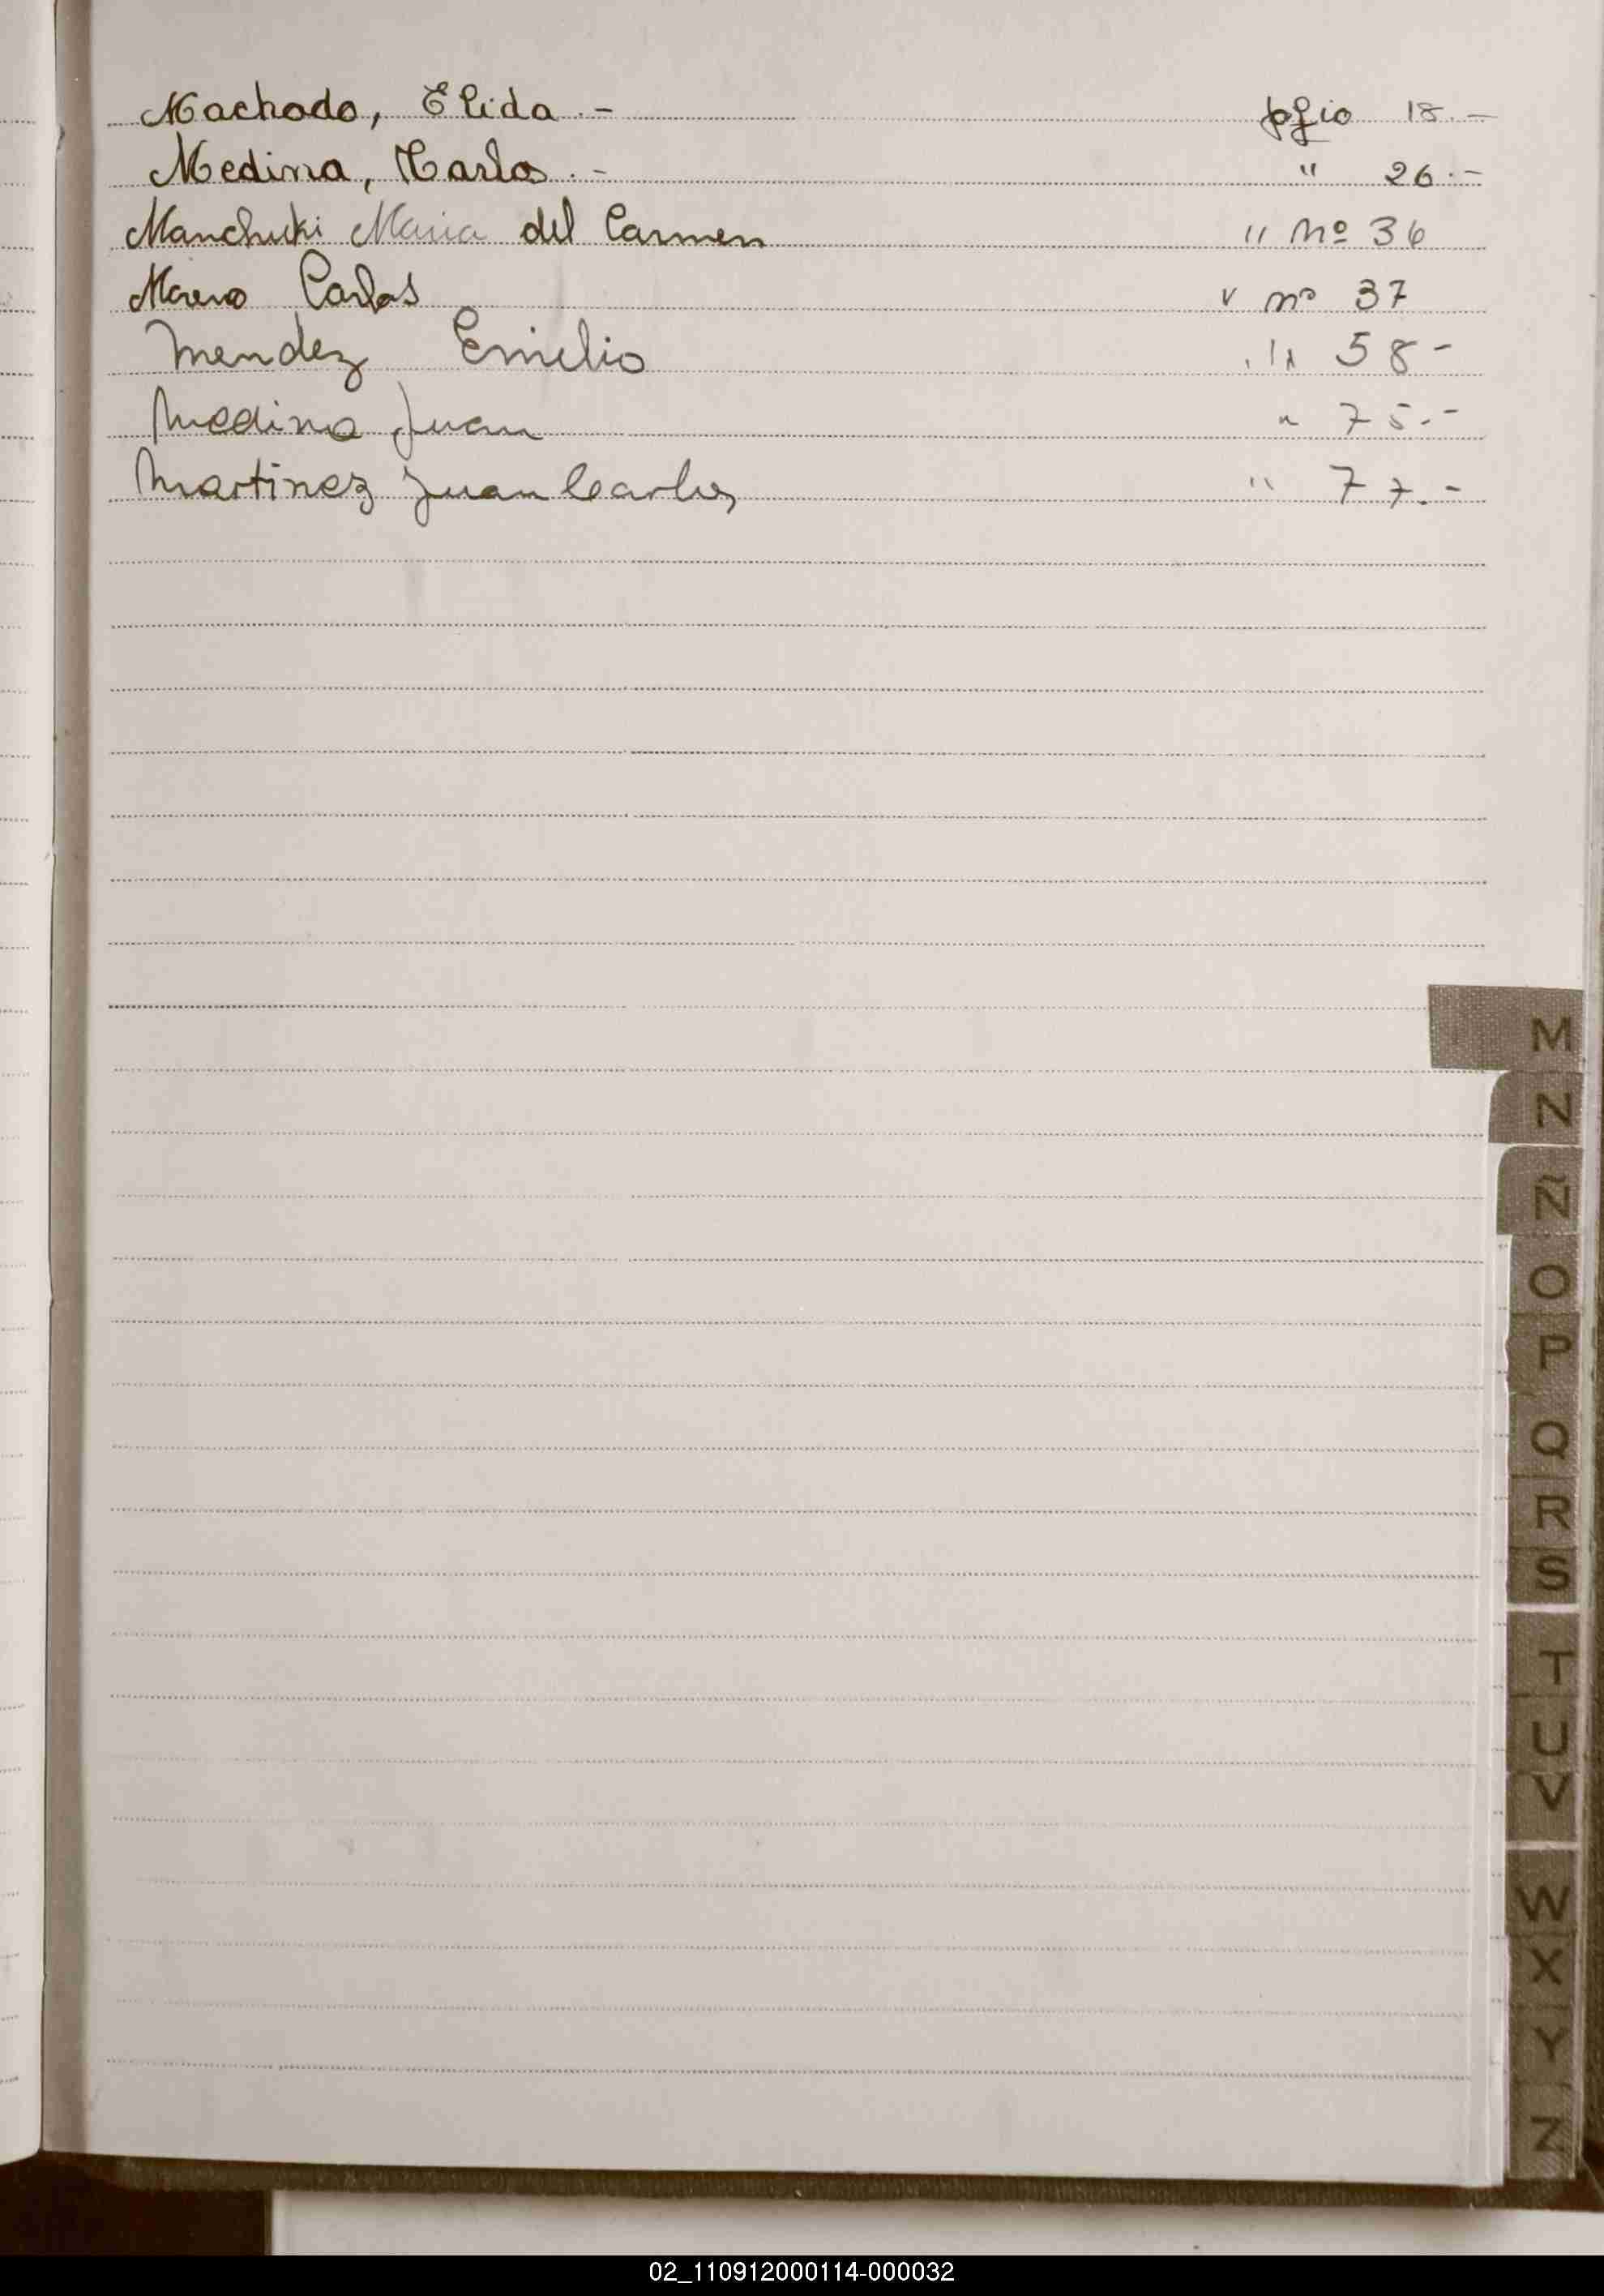 Machado, Elida.- fojio 18.-
Medina, Carlos.- " 26.-
Manchuki Maria del Carmen " Nº 36
Moreno Carlos " nº 37
Mendez Emilio " 58-
Medina Juan " 75.-
Martinez Juan Carlos " 77.-
M
N
Ñ
O
P
Q
R
S
T
U
V
W
X
Y
Z
02_110912000114-000032